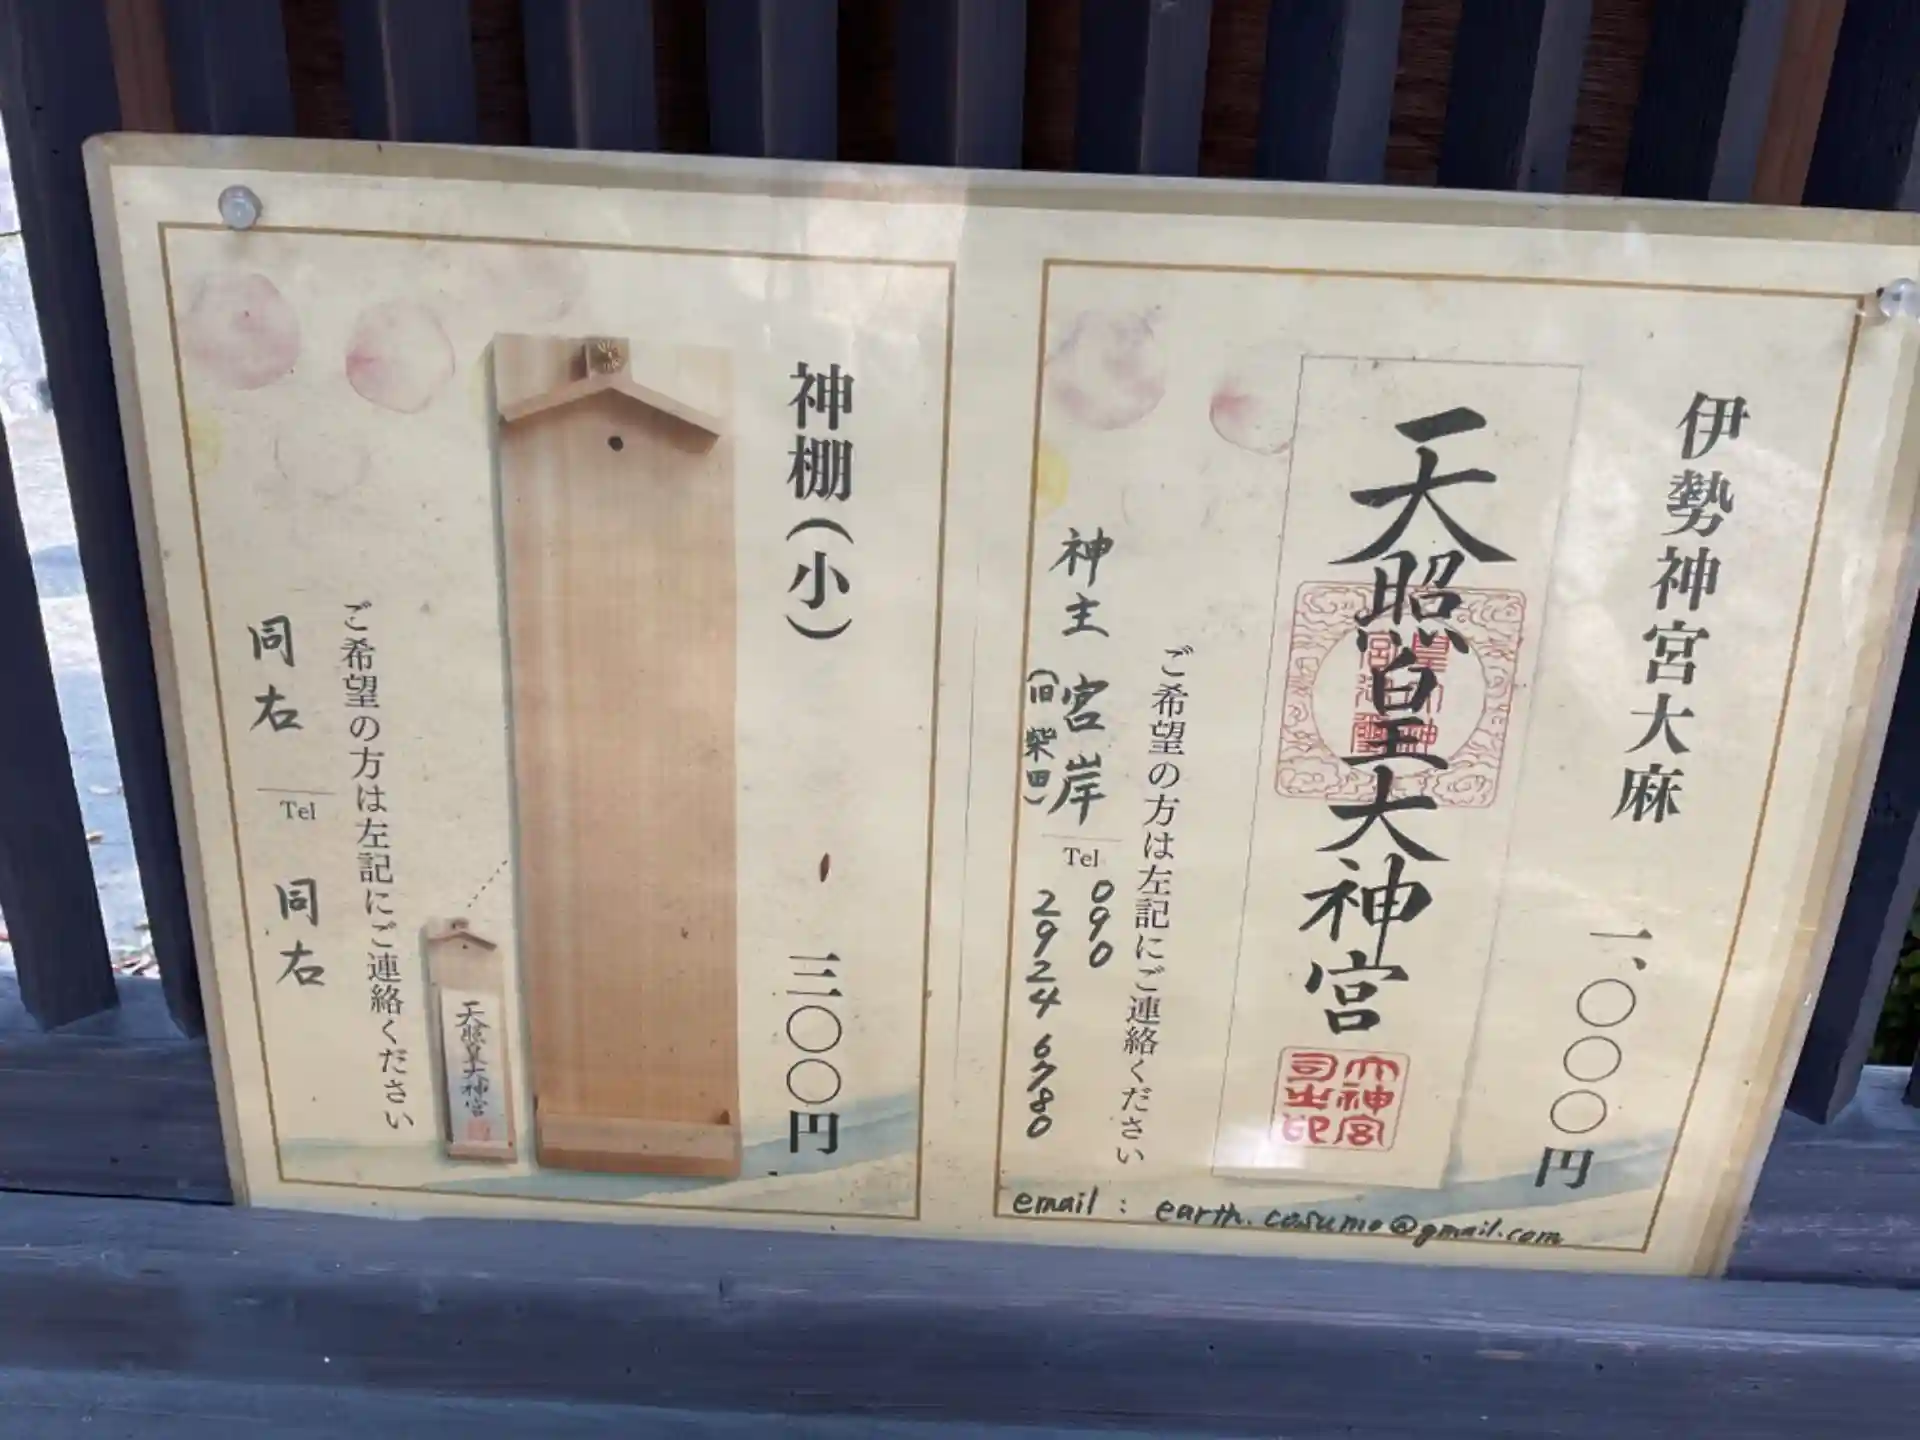 伊勢神宮大麻 一、〇〇〇円
天照皇大神宮
皇大神
宮御璽
大神宮
司之印
ご希望の方は左記にご連絡ください
神主 宮岸
(旧 柴田)
Tel
090
2924 6780
email : earth.cosumo@gmail.com
神棚(小) 三〇〇円
天照皇大神宮
ご希望の方は左記にご連絡ください
同右
Tel
同右